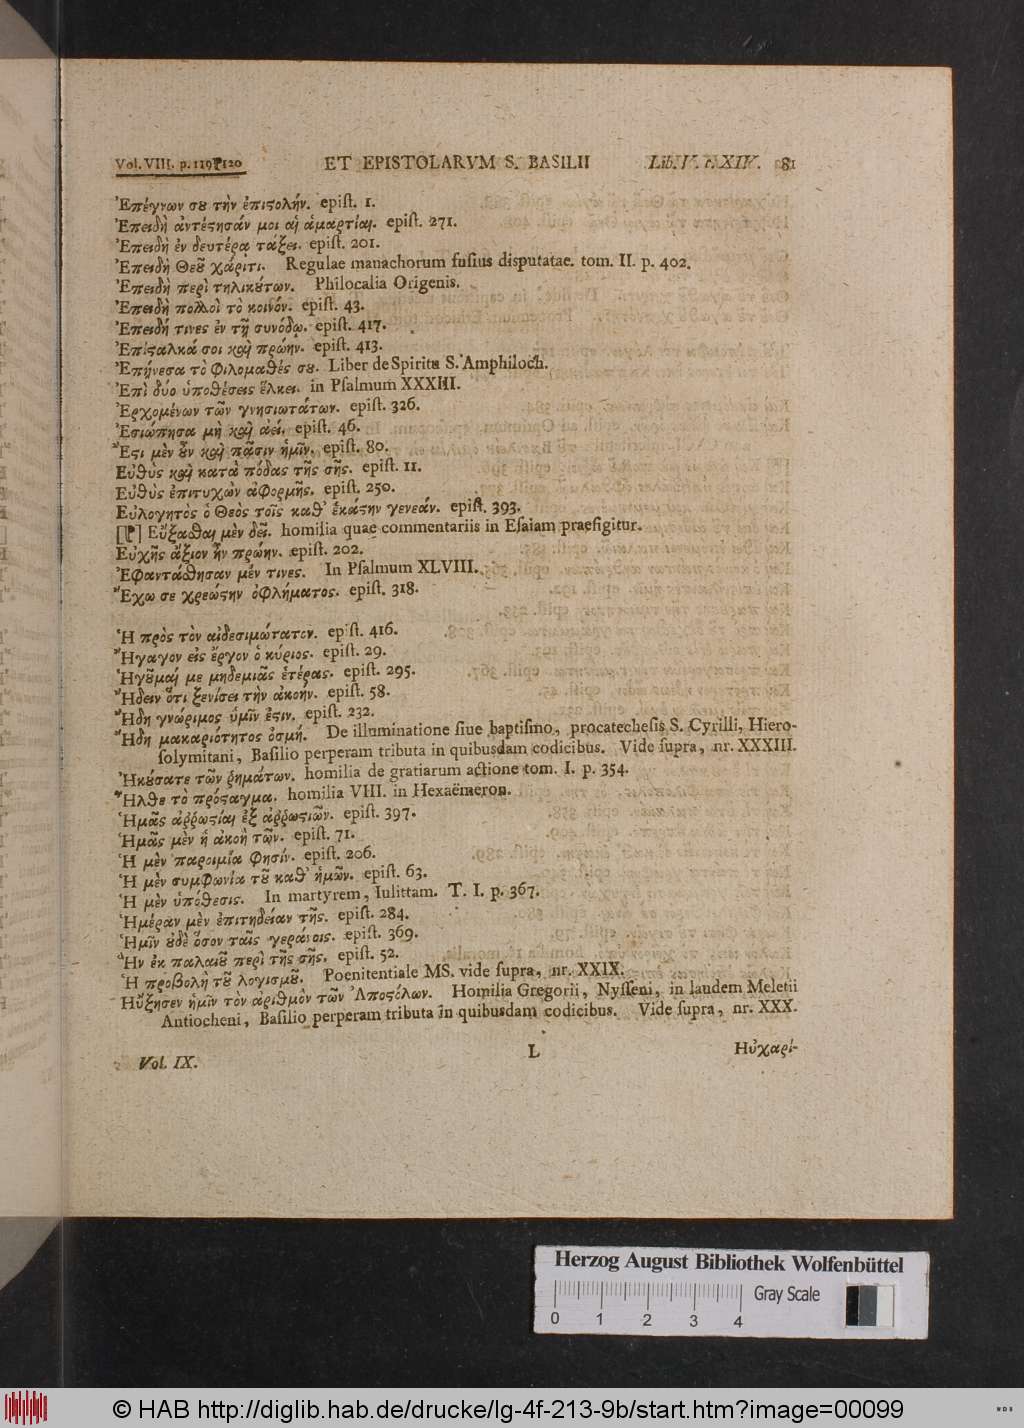 Vol. VIII. p. 119⁋120 ET EPISTOLARVM S. BASILII Lib. V. c. XIV. 81
Ἐπέγνων σου τὴν ἐπιϛολήν. epiſt. 1.
Ἐπειδὴ ἀντέϛησάν μοι αἱ ἁμαρτίαι. epiſt. 271.
Ἐπειδὴ ἐν δευτέρᾳ τάξει. epiſt. 201.
Ἐπειδὴ Θεοῦ χάριτι. Regulae manachorum fuſius diſputatae. tom. II. p. 402.
Ἐπειδὴ περὶ τηλικούτων. Philocalia Origenis.
Ἐπειδὴ πολλοὶ τὸ κοινόν. epiſt. 43.
Ἐπειδή τινες ἐν τῇ συνόδῳ. epiſt. 417.
Ἐπέϛαλκά σοι καὶ πρώην. epiſt. 413.
Ἐπῄνεσα τὸ φιλομαθές σου. Liber de Spiritu S. Amphiloch.
Ἐπὶ δύο ὑποθέσεις ἕλκει. in Pſalmum XXXIII.
Ἐρχομένων τῶν γνησιωτάτων. epiſt. 326.
Ἐσιώπησα μὴ καὶ ἀεί. epiſt. 46.
Ἔϛι μὲν οὖν καὶ πᾶσιν ἡμῖν. epiſt. 80.
Εὐθὺς καὶ κατὰ πόδας τῆς σῆς. epiſt. 11.
Εὐθὺς ἐπιτυχὼν ἀφορμῆς. epiſt. 250.
Εὐλογητὸς ὁ Θεὸς τοῖς καθ᾽ ἑκάϛην γενεάν. epiſt. 393.
[⁋] Εὔξασθαι μὲν δεῖ. homilia quae commentariis in Eſaiam praefigitur.
Εὐχῆς ἄξιον ἦν πρώην. epiſt. 202.
Ἐφαντάσθησαν μέν τινες. In Pſalmum XLVIII.
Ἔχω σε χρεώϛην ὀφλήματος. epiſt. 318.
Ἡ πρὸς τὸν αἰδεσιμώτατον. epiſt. 416.
Ἤγαγον εἰς ἔργον ὁ κύριος. epiſt. 29.
Ἡγοῦμαί με μηδεμιᾶς ἑτέρας. epiſt. 295.
Ἤδειν ὅτι ξενίσει τὴν ἀκοήν. epiſt. 58.
Ἤδη γνώριμος ὑμῖν ἐϛιν. epiſt. 232.
Ἤδη μακαριότητος ὀσμή. De illuminatione ſiue baptiſmo, procatecheſis S. Cyrilli, Hiero-
ſolymitani, Baſilio perperam tributa in quibusdam codicibus. Vide ſupra, nr. XXXIII.
Ἠκούσατε τῶν ῥημάτων. homilia de gratiarum actione tom. I. p. 354.
Ἦλθε τὸ πρόϛαγμα. homilia VIII. in Hexaëmeron.
Ἡμᾶς ἀῤῥωϛίαι ἐξ ἀῤῥωϛιῶν. epiſt. 397.
Ἡμᾶς μὲν ἡ ἀκοὴ τῶν. epiſt. 71.
Ἡ μὲν παροιμία φησίν. epiſt. 206.
Ἡ μὲν συμφωνία τοῦ καθ᾽ ἡμῶν. epiſt. 63.
Ἡ μὲν ὑπόθεσις. In martyrem, Iulittam. T. I. p. 367.
Ἡμέραν μὲν ἐπιτηδείαν τῆς. epiſt. 284.
Ἡμῖν οὐδὲ ὅσον ταῖς γεράνοις. epiſt. 369.
Ἦν ἐκ παλαιοῦ περὶ τῆς σῆς. epiſt. 52.
Ἡ προβολὴ τοῦ λογισμοῦ. Poenitentiale MS. vide ſupra, nr. XXIX.
Ηὔξησεν ἡμῖν τὸν ἀριθμὸν τῶν Ἀποϛόλων. Homilia Gregorii, Nyſſeni, in laudem Meletii
Antiocheni, Baſilio perperam tributa in quibusdam codicibus. Vide ſupra, nr. XXX.
Vol. IX. L Ηὐχαρί-
Herzog August Bibliothek Wolfenbüttel
0 1 2 3 4 Gray Scale
© HAB http://diglib.hab.de/drucke/lg-4f-213-9b/start.htm?image=00099